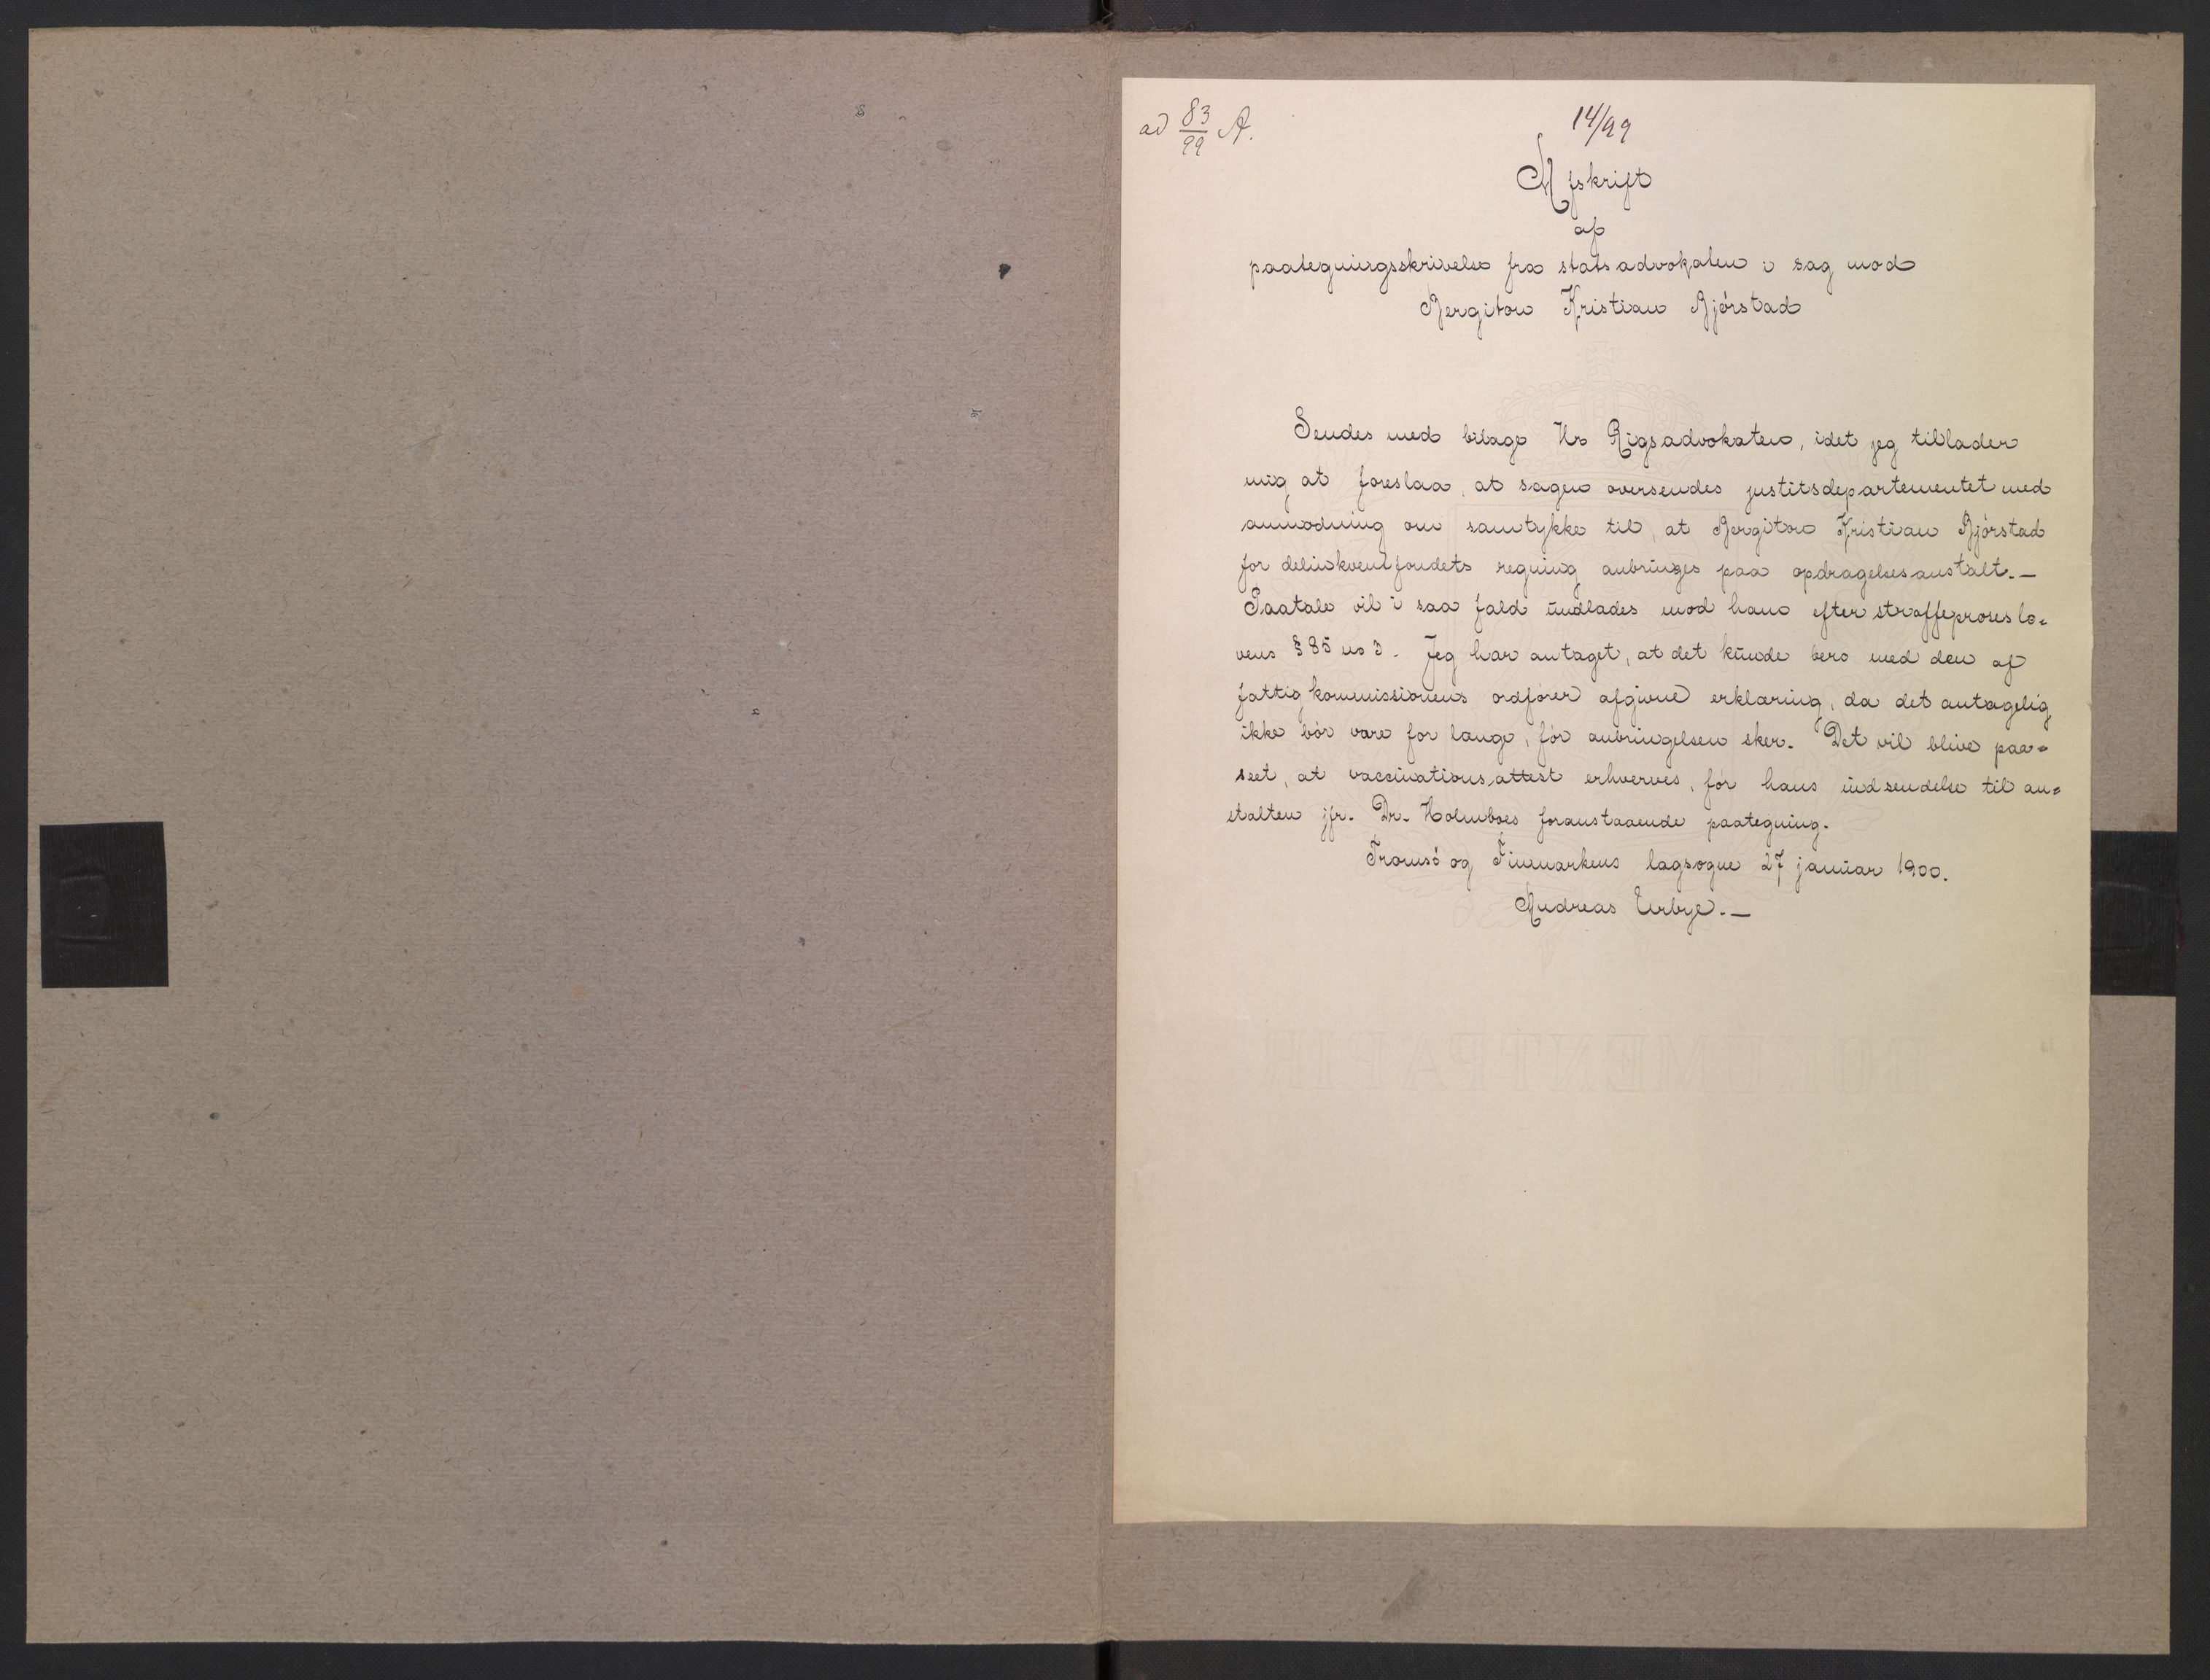 ad 83/99 A.
14/99
Afskrift
af
paategningsskrivelse fra statsadvokaten i sag mod
Bergiton Kristian Bjørstad
Sendes med bilage Hr Rigsadvokaten, idet jeg tillader
mig at foreslaa, at sagen oversendes justitsdepartementet med
anmodning om samtykke til, at Bergiton Kristian Bjørstad
for delinkventfondets regning anbringes paa opdragelsesanstalt. —
Paatale vil i saa fald undlades mod ham efter straffeproseslo-
vens § 85 no 3. Jeg har antaget, at det kunde bero med den af
fattigkommissionens ordfører afgivne erklæring, da det antagelig
ikke bør vare for længe, før anbringelsen sker. Det vil blive paa-
seet, at vaccinationsattest erhverves, før hans indsendelse til an-
stalten jfr. Dr. Holmboes foranstaaende paategning.
Tromsø og Finmarkens lagsogne 27 januar 1900.
Andreas Urbye. —
DOKUMENTPAPIR